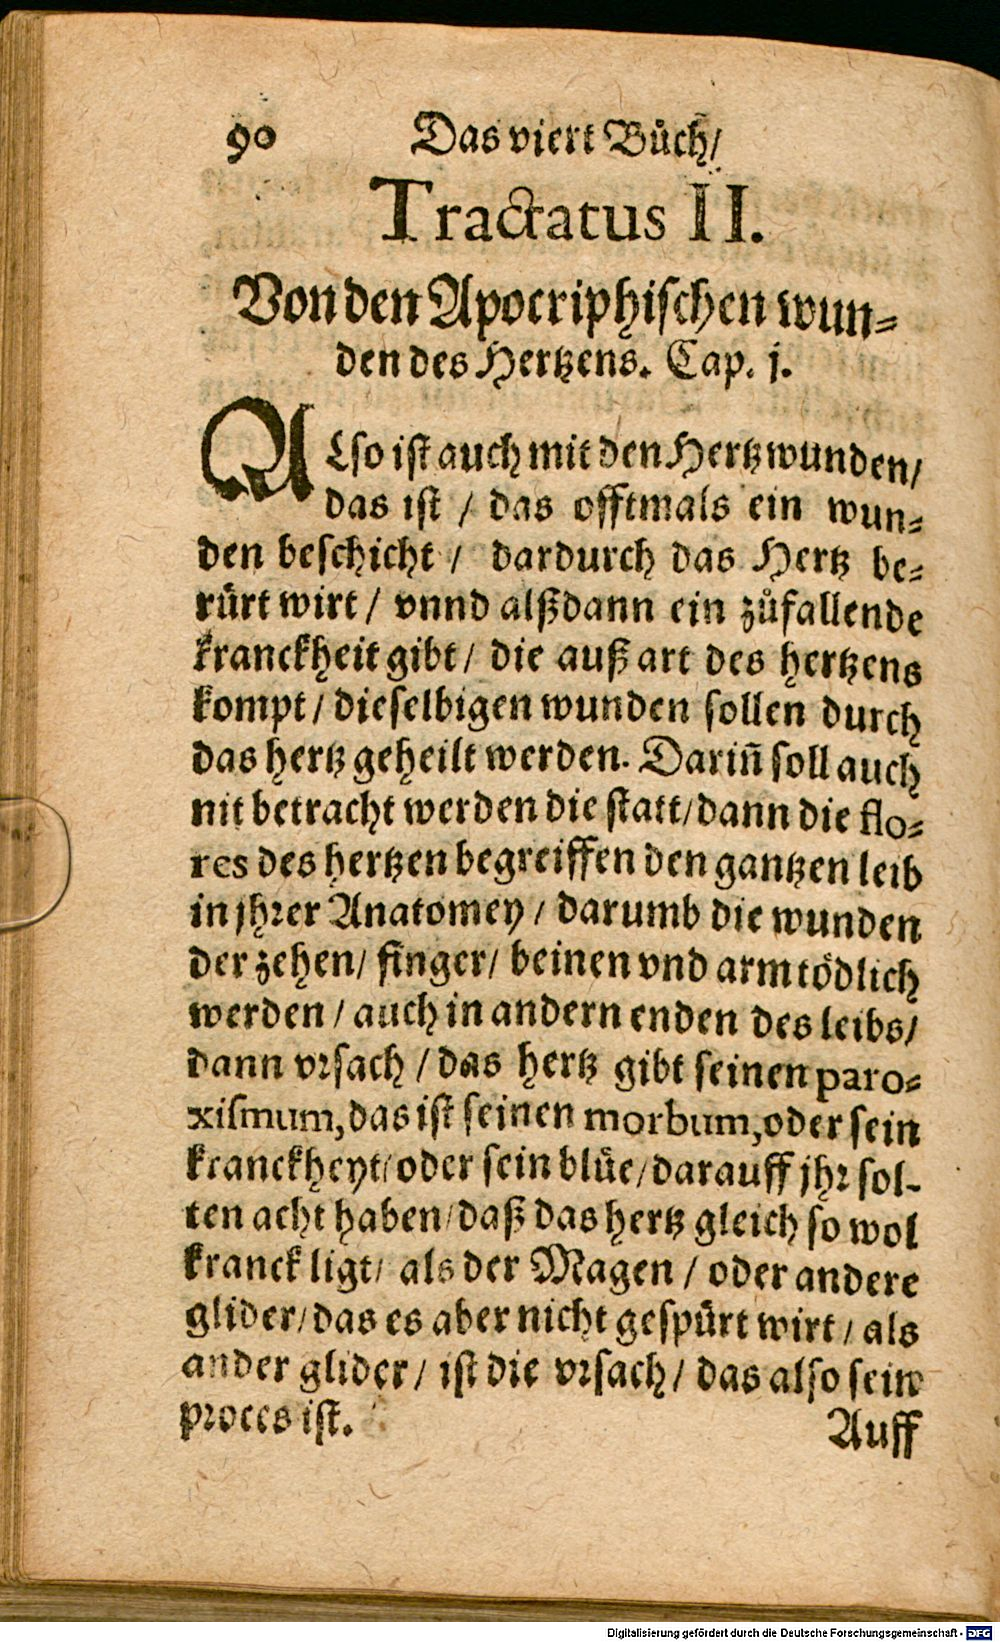 90 Das viert Bůch/
Tractatus II.
Von den Apocriphischen wun⸗
den des Hertzens. Cap. j.
ALso ist auch mit den Hertzwunden/
das ist / das offtmals ein wun⸗
den beschicht / dardurch das Hertz be⸗
rürt wirt / vnnd alßdann ein zůfallende
kranckheit gibt / die auß art des hertzens
kompt / dieselbigen wunden sollen durch
das hertz geheilt werden. Dariñ soll auch
nit betracht werden die statt/dann die flo⸗
res des hertzen begreiffen den gantzen leib
in jhrer Anatomey / darumb die wunden
der zehen/ finger/ beinen vnd arm tödlich
werden / auch in andern enden des leibs/
dann vrsach / das hertz gibt seinen paro⸗
xismum, das ist seinen morbum, oder sein
kranckheyt/oder sein blüe/darauff jhr sol-
ten acht haben/daß das hertz gleich so wol
kranck ligt/ als der Magen / oder andere
glider/das es aber nicht gespürt wirt / als
ander glider / ist die vrsach / das also sein
proces ist.
Auff
Digitalisierung gefördert durch die Deutsche Forschungsgemeinschaft - DFG